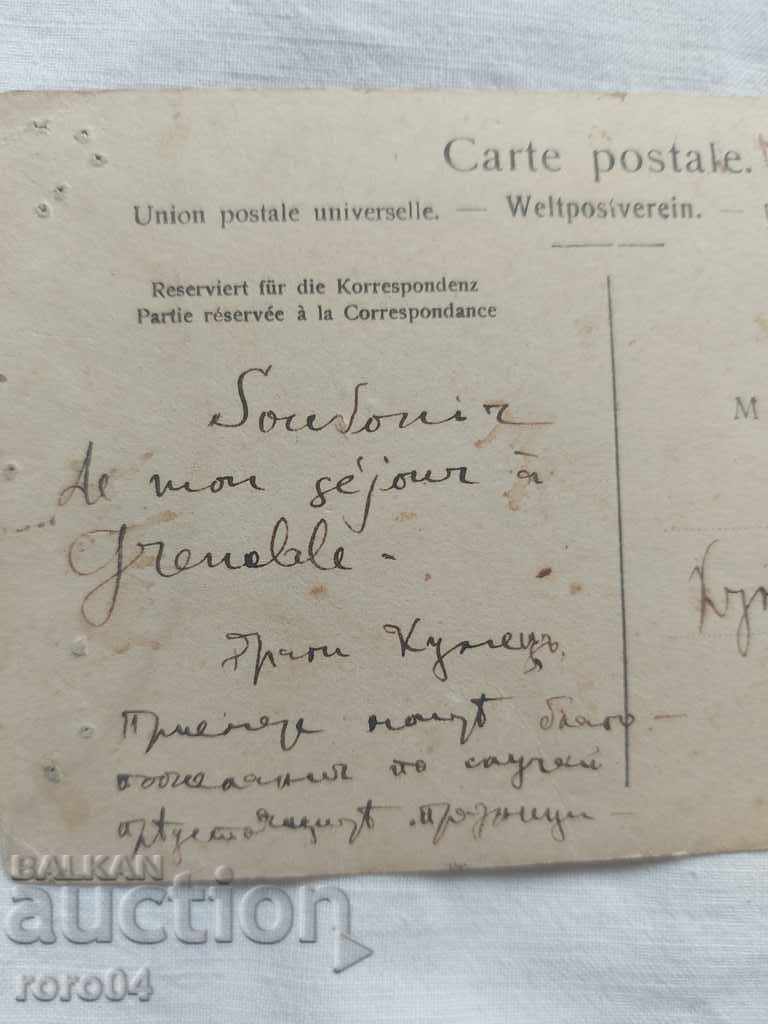 Carte postale.
Union postale universelle. — Weltpostverein. —
Reserviert für die Korrespondenz
Partie réservée à la Correspondance
M
Souvenir
de mon séjour à
Grenoble -
Драги
Приемете благо-
пожелания по случай
празници -
BALKAN
auction
roro04